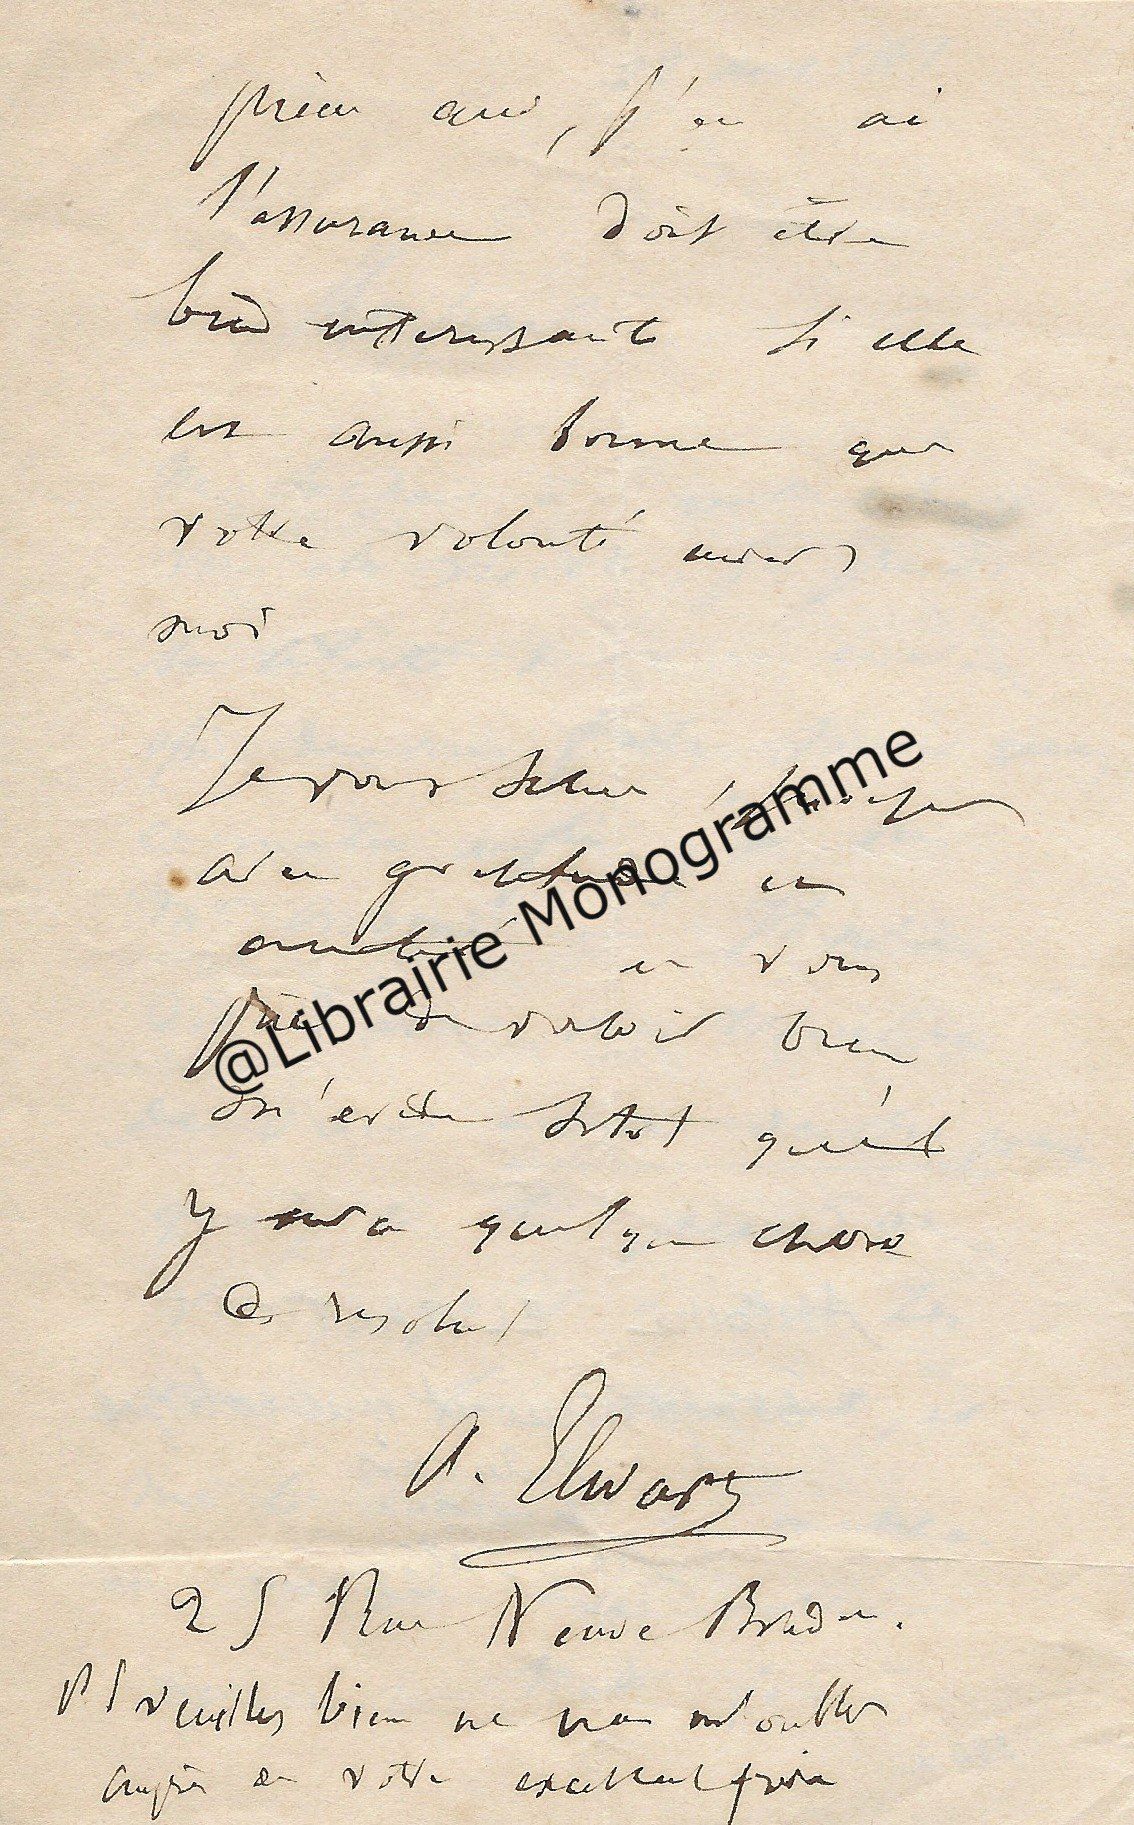 pièce qui, j'en ai
l'assurance doit être
bien interessante si elle
est aussi bonne que
votre volonté envers
moi
Je vous salue
avec gratitude et
amitié et vous
prie de vouloir bien
m'ecrire sitot qu'il
y aura quelque chose
de resolu!
A. Elwart
25 Rue Neuve Breda.
PS veuillez bien ne pas m'oublier
auprès de votre excellent frère
@Librairie Monogramme